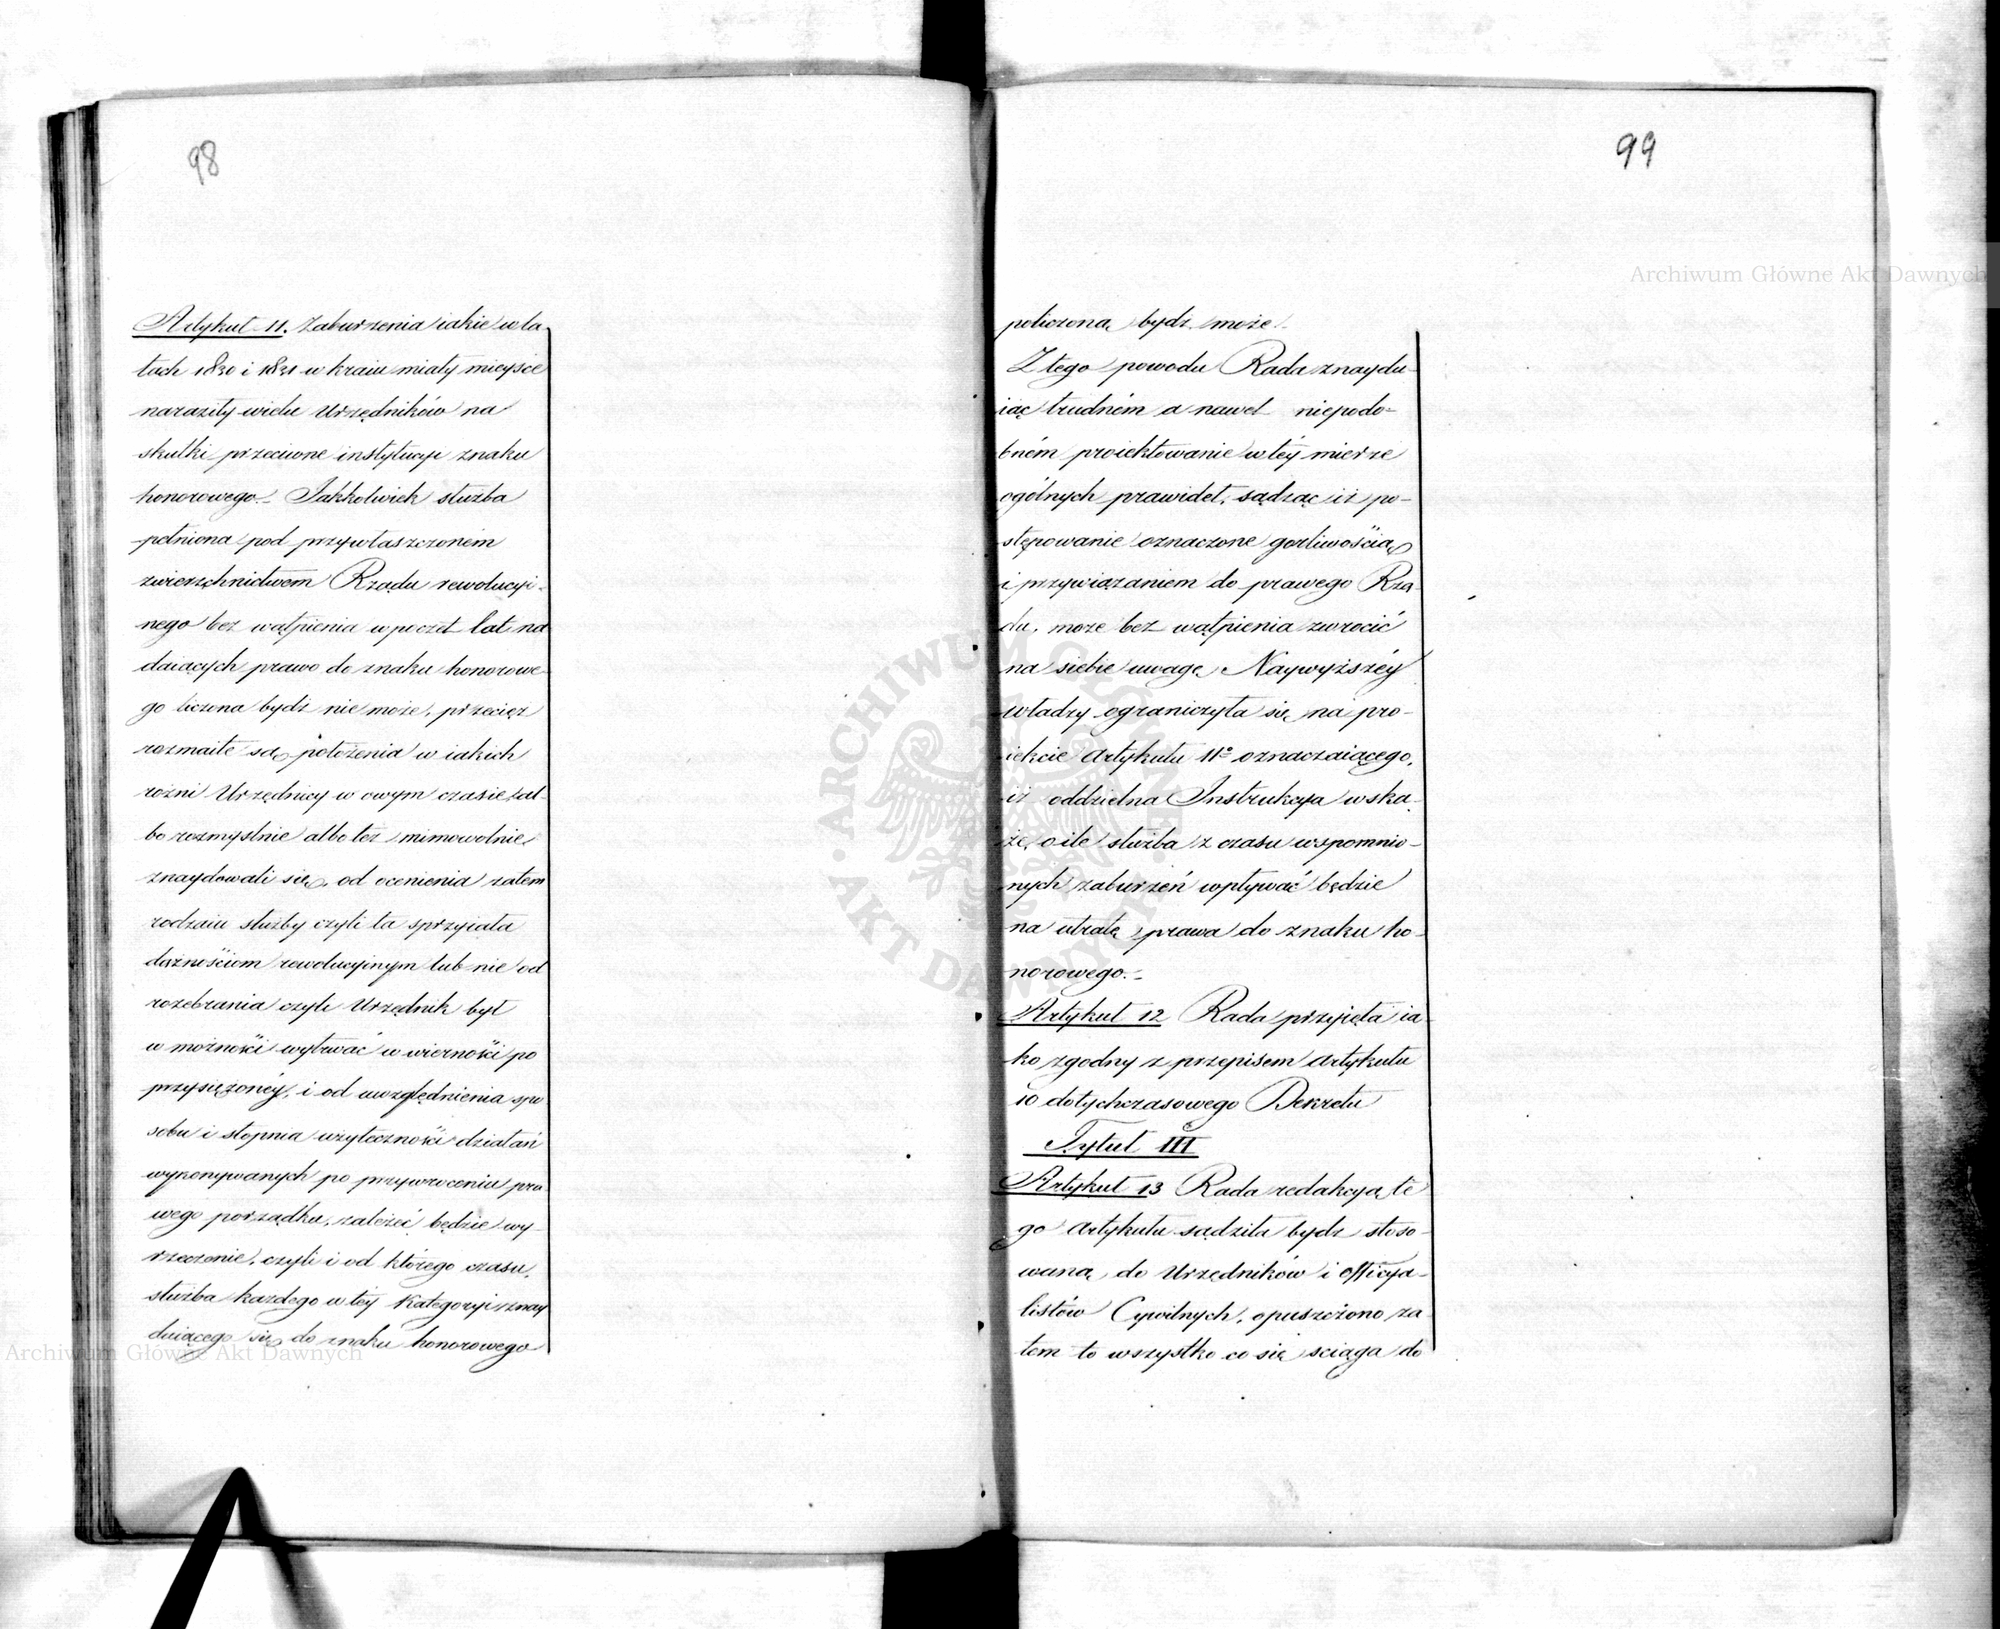 98
Artykuł 11. Zaburzenia iakie w la
tach 1830 i 1831 w kraiu miały mieysce
naraziły wielu Urzędników na
skutki przeciwne instytucyi znaku
honorowego. Jakkolwiek służba
pełniona pod przywłaszczonem
zwierzchnictwem Rządu rewolucyi-
nego bez wątpienia w poczet lat na
daiących prawo do znaku honorowe-
go liczona bydź nie może, przecież
rozmaite są położenia w iakich
rożni Urzędnicy w owym czasie al-
bo rozmyslnie albo też mimowolnie
znaydowali się, od ocenienia zatem
rodzaiu służby czyli ta sprzyiała
dążnościom rewolucyinym lub nie od
rozebrania czyli Urzędnik był
w możności wytrwać w wierności po
przysiężonéy, i od uwzględnienia spo
sobu i stopnia użyteczności działań
wykonywanych po przywroceniu pra-
wego porządku, zależeć będzie wy-
rzeczenie, czyli i od którego czasu,
służba każdego w tey Kategoryi znay
duiącego się do znaku honorowego
99
policzoną bydź może.
Z tego powodu Rada znaydu-
iąc trudném a nawet niepodo-
bném proiektowanie w téy mierze
ogólnych prawideł, sądząc iż po-
stępowanie oznaczone gorliwością
i przywiązaniem do prawego Rzą-
du, może bez wątpienia zwrocić
na siebie uwagę Naywyższéy
władzy ograniczyła się na pro-
iekcie Artykułu 11º oznaczaiącego,
iż oddzielna Instrukcya wska-
że, o ile służba z czasu wspomnio-
nych zaburzeń wpływać będzie
na utratę prawa do znaku ho-
norowego.
Artykuł 12 Rada przyięła ia-
ko zgodny z przepisem Artykułu
10 dotychczasowego Dekretu
Tytuł III
Artykuł 13 Rada redakcyą te
go Artykułu sądziła bydź stoso-
waną do Urzędników i Officya-
listów Cywilnych, opuszczono za
tem to wszystko co się sciąga do
Archiwum Główne Akt Dawnych
Archiwum Główne Akt Dawnych
ARCHIWUM GŁÓWNE AKT DAWNYCH